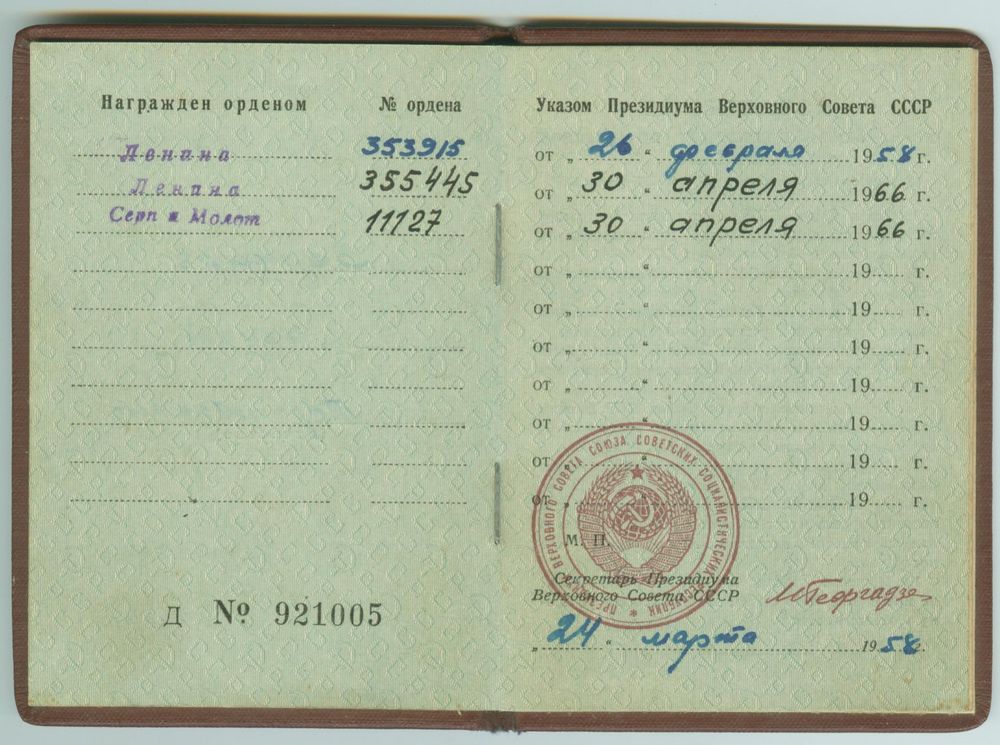 Награжден орденом № ордена
Ленина 353915
Ленина 355445
Серп и Молот 11127
Д № 921005
Указом Президиума Верховного Совета СССР
от „ 26 “ февраля 1958 г.
от „ 30 “ апреля 1966 г.
от „ 30 “ апреля 1966 г.
от „ “ 19 г.
от „ “ 19 г.
от „ “ 19 г.
от „ “ 19 г.
от „ “ 19 г.
от „ “ 19 г.
от „ “ 19 г.
ПРЕЗИДИУМ ВЕРХОВНОГО СОВЕТА СОЮЗА СОВЕТСКИХ СОЦИАЛИСТИЧЕСКИХ РЕСПУБЛИК
М. П.
Секретарь Президиума
Верховного Совета СССР МГеоргадзе
„ 24 “ марта 1958 г.